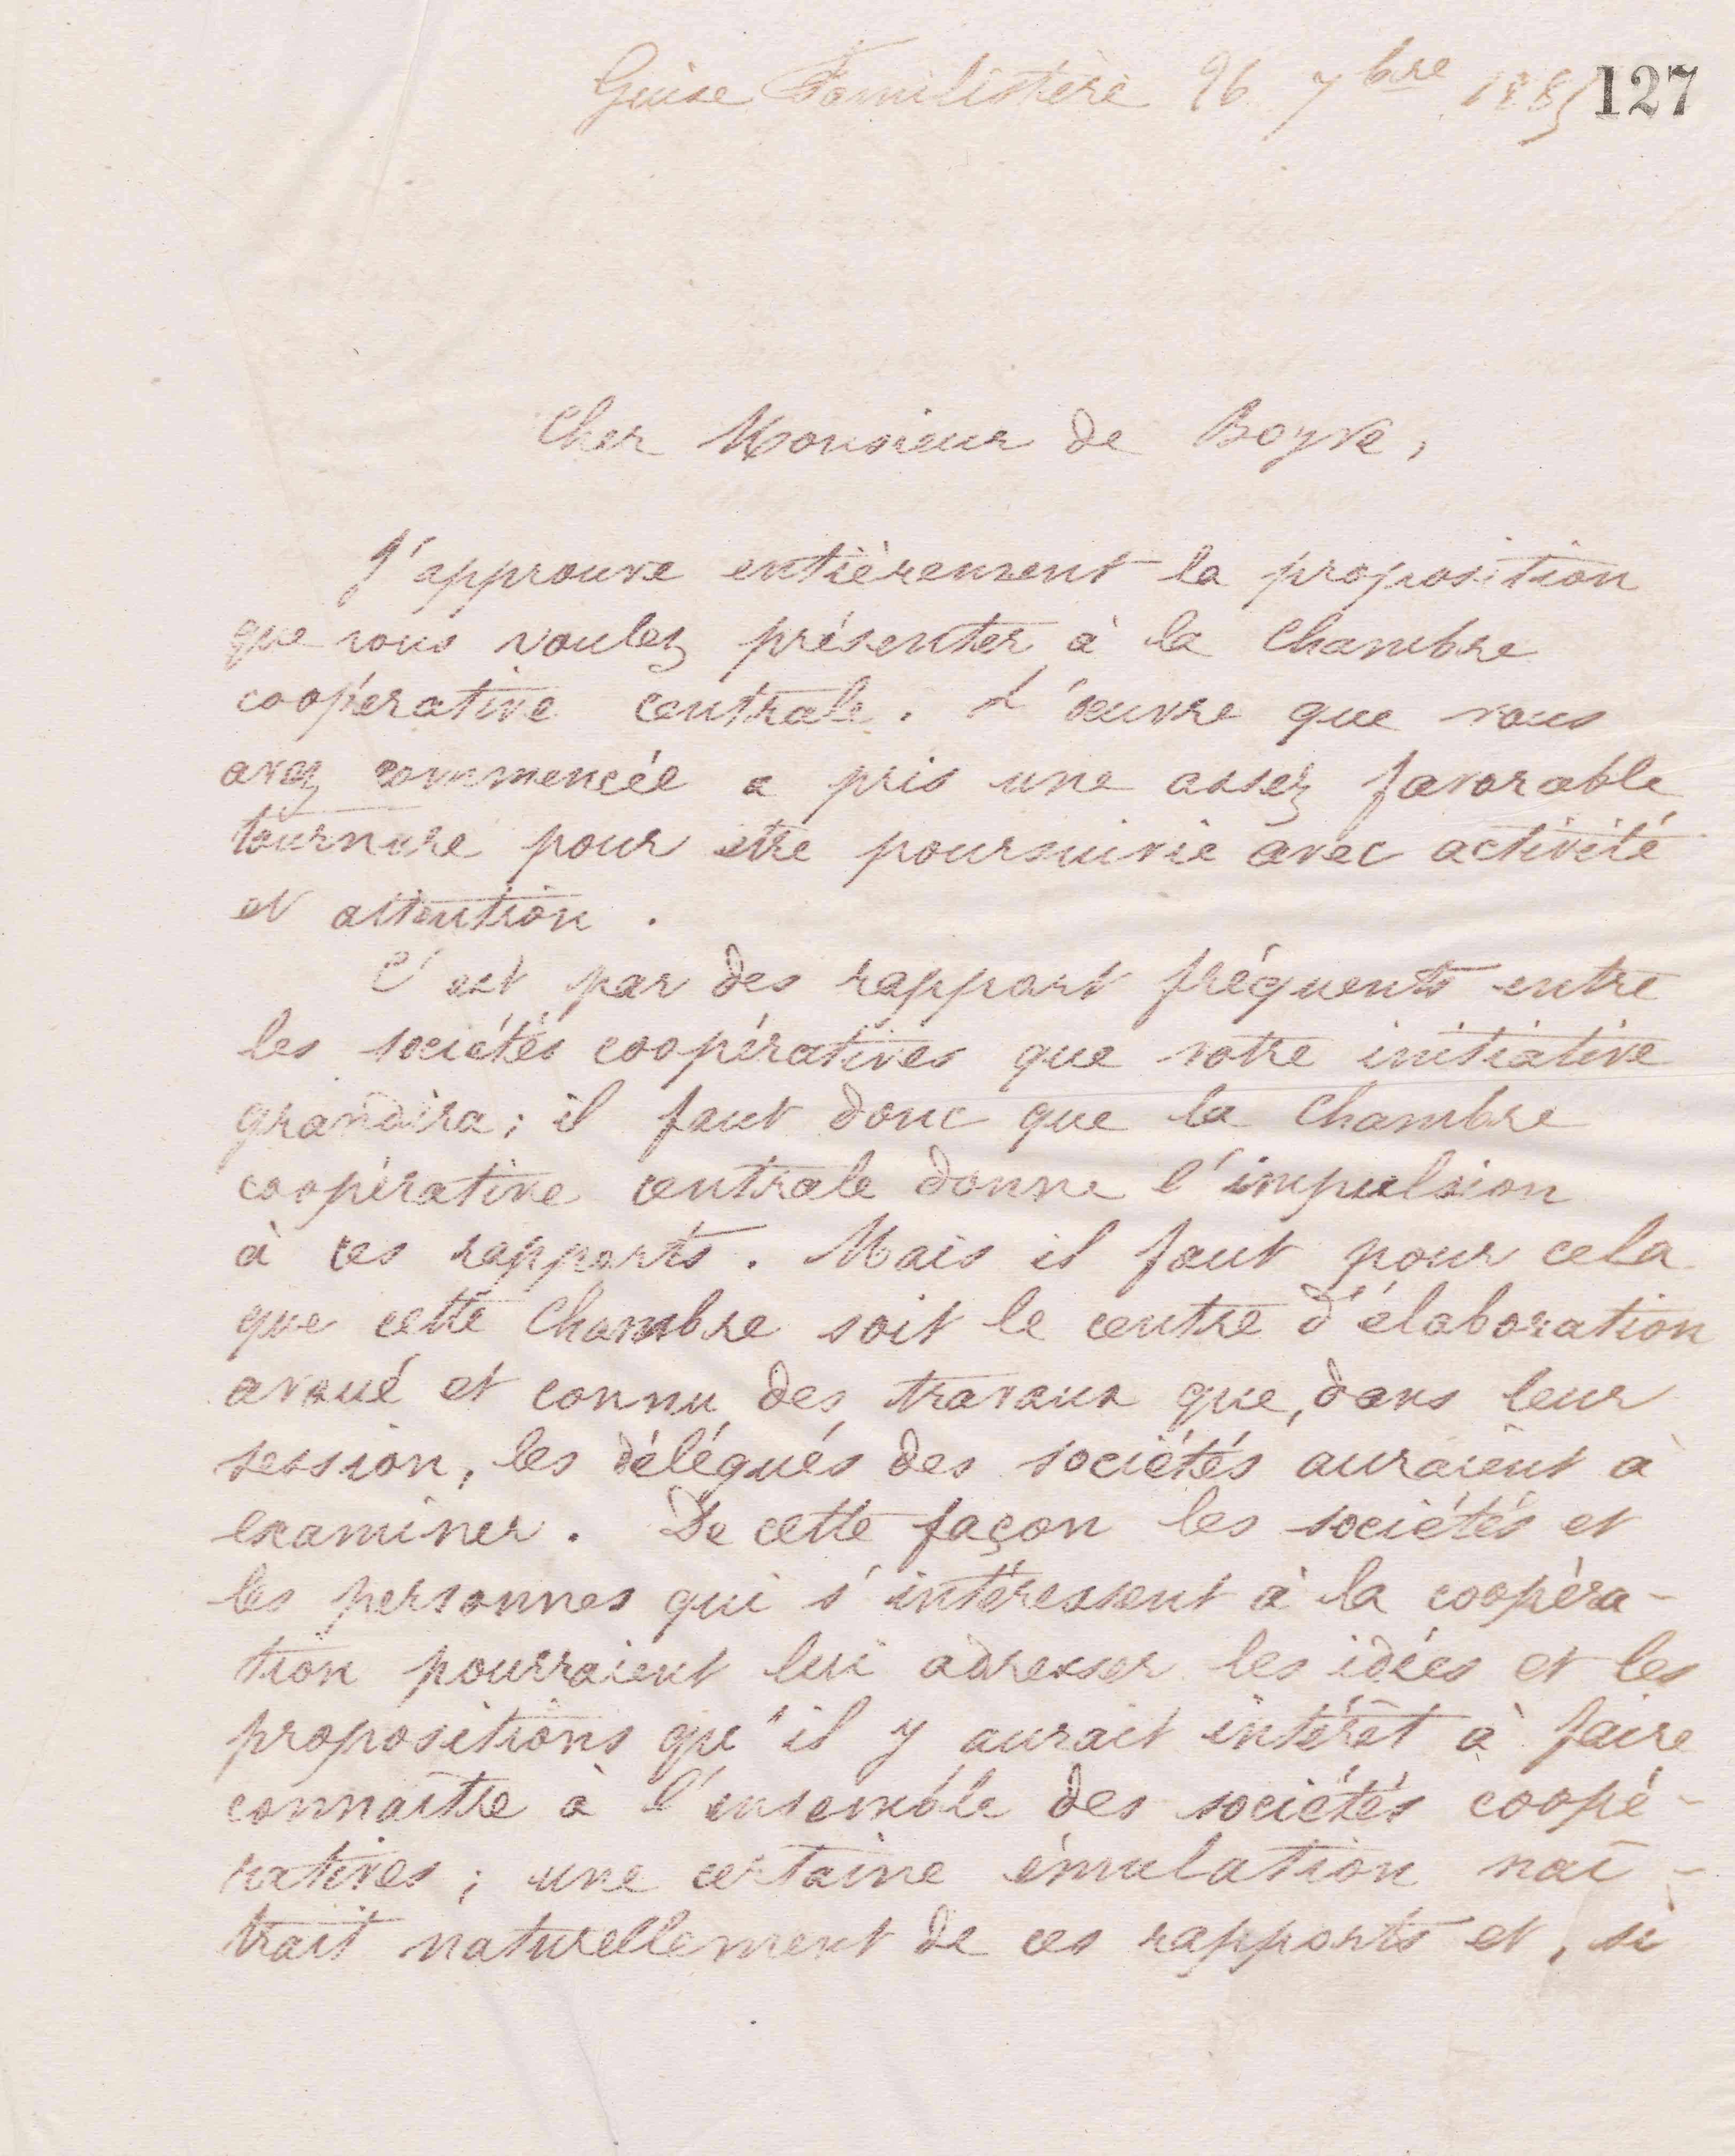 Guise Familistère 26 7bre 1885
127
Cher Monsieur de Boyve,
J'approuve entièrement la proposition
que vous voulez présenter à la Chambre
coopérative centrale. L'œuvre que vous
avez commencée a pris une assez favorable
tournure pour etre poursuivie avec activité
et attention.
C'est par des rapport fréquents entre
les sociétés coopératives que votre initiative
grandira ; il faut donc que la Chambre
coopérative centrale donne l'impulsion
à ces rapports. Mais il faut pour cela
que cette Chambre soit le centre d'élaboration
avoué et connu des travaux que, dans leur
session, les délégués des sociétés auraient à
examiner. De cette façon les sociétés et
les personnes qui s'intéressent à la coopéra-
tion pourraient lui adresser les idées et les
propositions qu'il y aurait intérêt à faire
connaitre à l'ensemble des sociétés coopé-
ratives ; une certaine émulation naî-
trait naturellement de ces rapports et, si